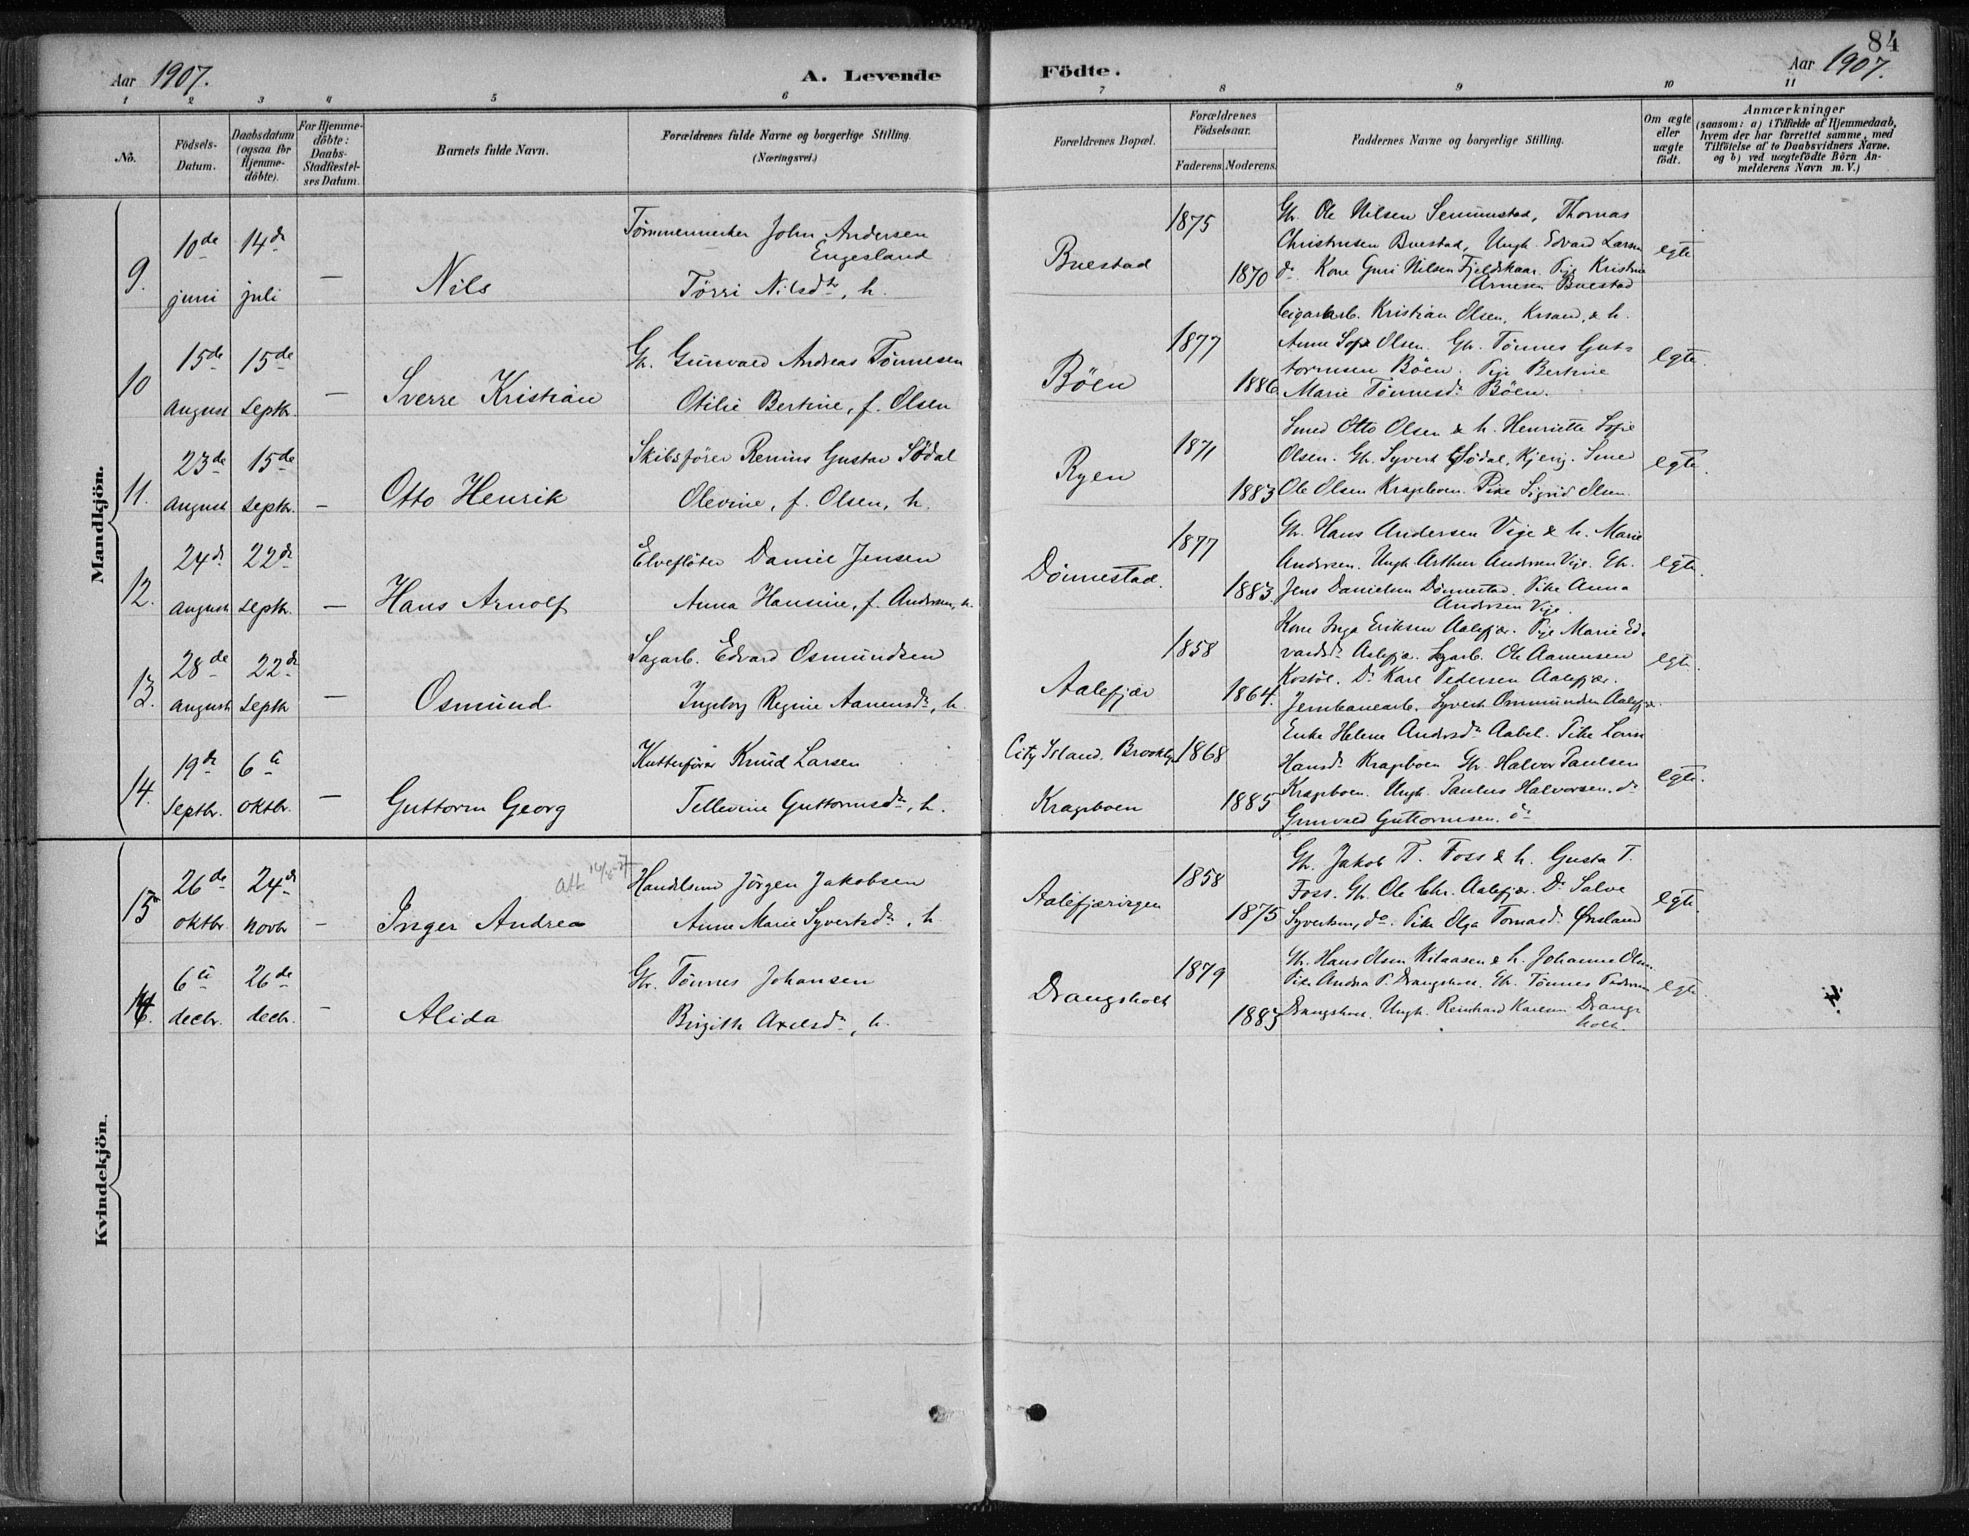 84
Aar 1907.
A. Levende Födte.
Aar 1907.
1 2 3 4 5 6 7 8 9 10 11
No.
Födsels-Datum.
Daabsdatum (ogsaa for Hjemme-döbte).
For Hjemme-döbte: Daabs-Stadfæstel-ses Datum.
Barnets fulde Navn.
Forældrenes fulde Navne og borgerlige Stilling.
(Næringsvei.)
Forældrenes Bopæl.
Forældrenes Födselsaar.
Faderens. Moderens.
Faddernes Navne og borgerlige Stilling.
Om ægte eller uægte födt.
Anmærkninger
(saasom: a) i Tilfælde af Hjemmedaab,
hvem der har forrettet samme, med
Tilföielse af to Daabsvidners Navne.
og b) ved uægtefödte Börn An-
melderens Navn m. V.)
Mandkjön.
9.
10de juni
14de juli
—
Nils
Tømmermerker John Andersen
Engesland
Tørri Nilsdtr, h.
Buestad
1875
1870
Gbr. Ole Nilsen Senumstad, Thomas
Christensen Buestad, Ungk. Edvard Larsen
do Kone Guri Nilsen Fjeldskaar. Pige Kristine
Arnesen Buestad
egte
10
15de august
15de septbr.
—
Sverre Kristian
Gbr. Gunvald Andreas Tønnesen
Otilie Bertine, f. Olsen
Böen
1877
1886
Cigararb. Kristian Olsen, Krsand, & h.
Anne Sofie Olsen. Gbr. Tønnes Gut-
tormsen Böen. Pige Bertine
Marie Tønnesdr Böen.
egte.
11.
23de august
15de septbr.
—
Otto Henrik
Skibsfører Remius Gustav Södal
Olevine, f. Olsen, h.
Ryen
1871
1883
Smed Otto Olsen & h. Henriette Sofie
Olsen. Gbr. Syvert Södal, Kjevig. Smed
Ole Olsen Krageboen. Pike Sigrid Olsen
egte.
12.
24de august
22de septbr.
—
Hans Arnolf
Elvefløter Daniel Jensen
Anna Hansine, f. Andersen, h.
Dönnestad.
1877
1883.
Gbr. Hans Andersen Vige & h. Marie
Andersen. Ungk. Arthur Andersen Vige. Gbr.
Jens Danielsen Dönnestad. Pike Anna
Andersen Vige.
egte.
13.
28de august
22de septbr
—
Osmund
Sagarb. Edvard Osmundsen
Ingeborg Regine Aanensdr, h.
Aalefjær
1858
1864.
Kone Inga Eriksen Aalefjær. Pige Marie Ed-
vardsdr Aalefjær. Sagarb. Ole Aanensen
Kostöl. Do Karl Pedersen Aalefjær.
Jernbanearb. Syvert Ommundsen Aalefjær.
egte.
14.
19de Septbr.
6te oktbr.
—
Guttorm Georg
Kutterfører Knud Larsen
Tellevine Guttormsdr, h.
City Island. Brooklyn
Krageboen
1868
1885
Enke Helene Andersdr Aabel. Pike Lovise
Hansdr Krageboen Gbr. Halvor Paulsen
Krageboen. Ungk. Paulus Halvorsen. do
Gunvald Guttormsen. do
egte.
Kvindekjön.
15
26de oktbr.
24de novbr
—
Att. 14/5-27
Inger Andrea
Handelsmd Jörgen Jakobsen
Anne Marie Syvertsdr, h
Aalefjærvigen
1858
1875
Gbr. Jakob T. Foss & h. Gusta T.
Foss. Gbr. Ole Chr. Aalefjær. Do Salve
Syvertsen, do. Pike Olga Tomasdr Ønsland
egte.
16.
6te decbr.
26de decbr.
—
Alida
Gbr. Tönnes Johansen
Birgith Axelsdr, h.
Drangsholt
1879
1883
Gbr. Hans Olsen Kilaasen & h. Johanne Olsen.
Pike Andrea P. Drangsholt. Gbr. Tønnes Pedersen
Drangsholt. Ungk. Reinhard Karlsen Drangs-
holt.
egte.